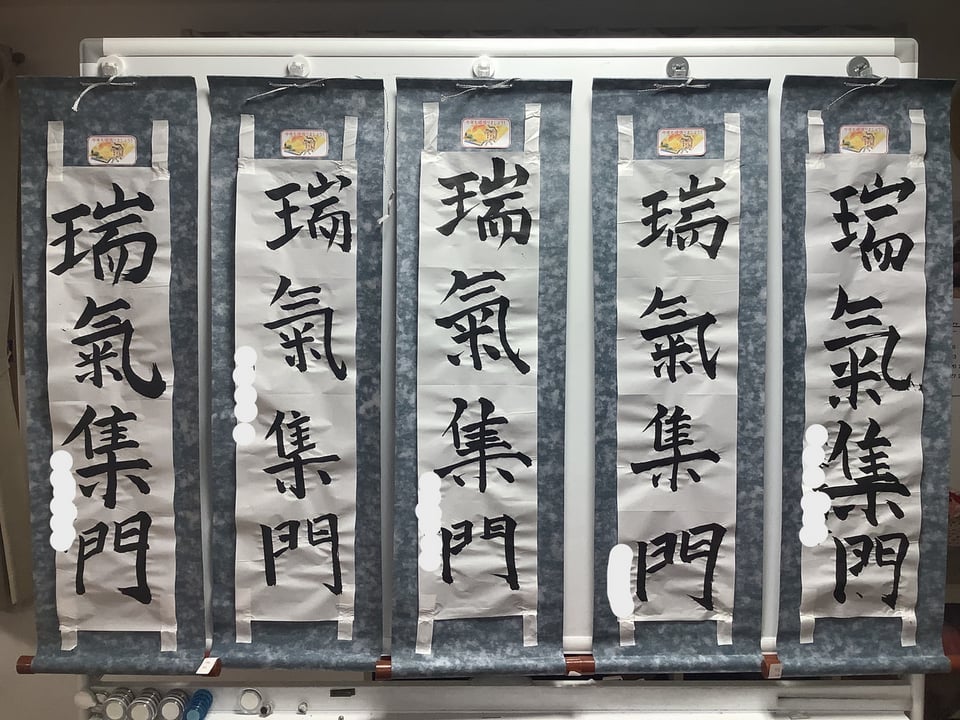 瑞氣集門
瑞氣集門
瑞氣集門
瑞氣集門
瑞氣集門